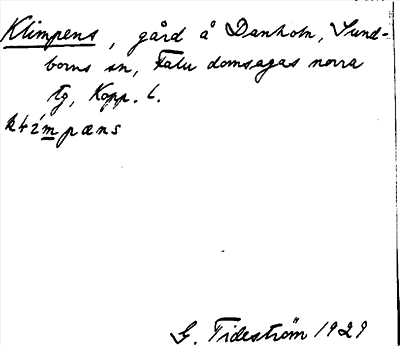 Klimpens, gård å Danholn, Sund-
borns sn, Falu domsagas norra
tg, Kopp. l.
G. Tideström 1929